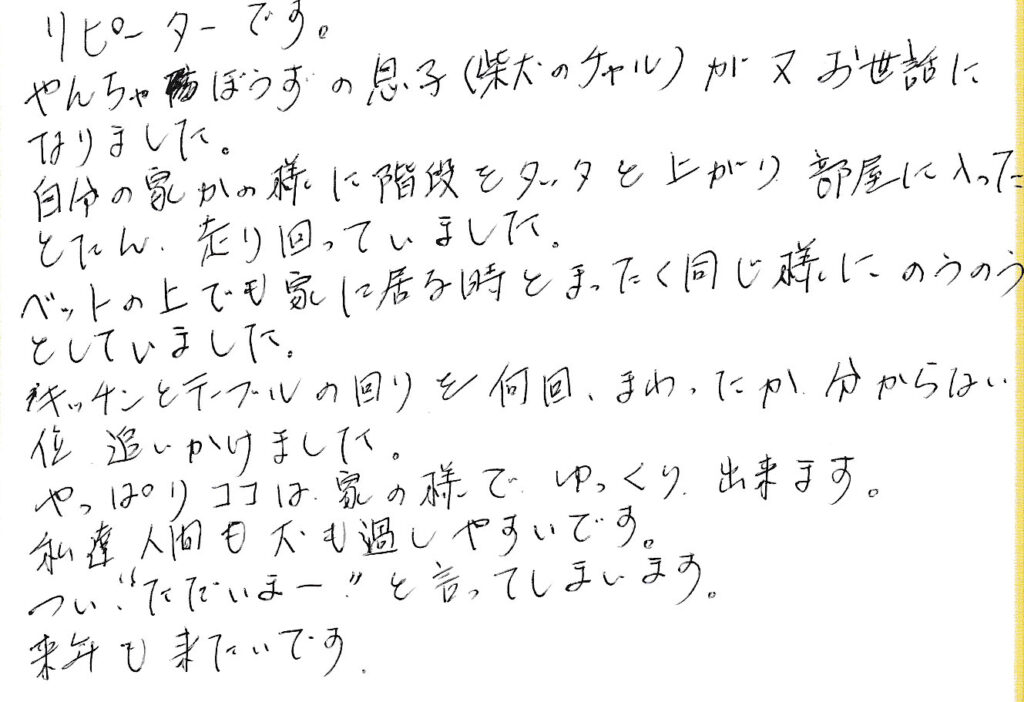 リピーターです。
やんちゃぼうずの息子(柴犬のチャル)が又お世話に
なりました。
自分の家かの様に階段をタッタと上がり部屋に入った
とたん、走り回っていました。
ベットの上でも家に居る時とまったく同じ様にのうのう
としていました。
キッチンとテーブルの回りを何回、まわったか、分からない
位、追いかけました。
やっぱりココは、家の様で、ゆっくり、出来ます。
私達人間も犬も過しやすいです。
つい“ただいまー”と言ってしまいます。
来年も来たいです.